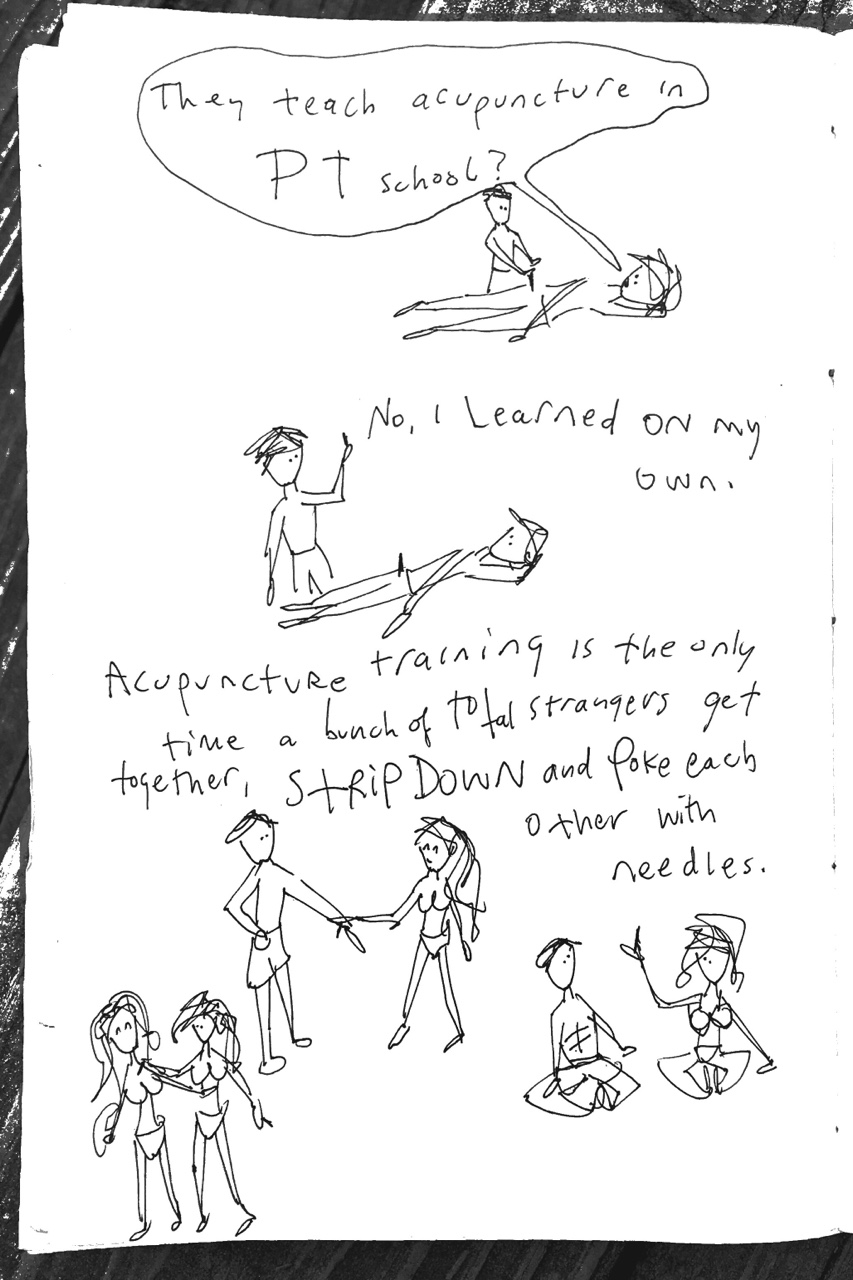 They teach acupuncture in
PT school?
No, I Learned ON my
own.
Acupuncture training is the only
time a bunch of total strangers get
together, STRIP DOWN and Poke each
other with
needles.